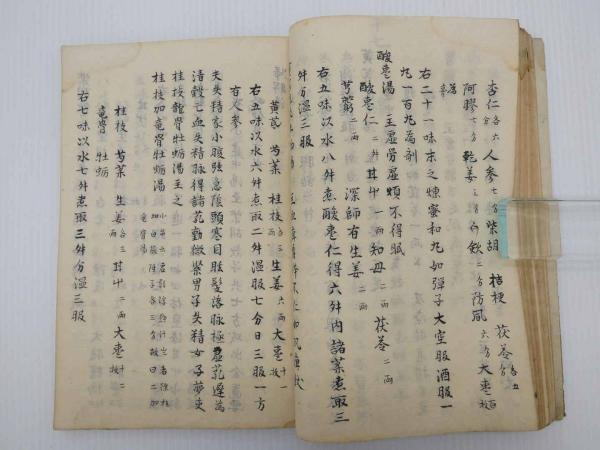 杏仁各六 人參七分 柴胡 桔梗 茯苓各五分
阿膠七分 乾姜三分 白斂二分 防風六分 大棗百枚
為膏
右二十一味末之煉蜜和丸如彈子大空服酒服一
丸一百丸為劑
酸棗湯 主虛勞虛煩不得眠
酸棗仁二升 甘艸一兩 知母二兩 茯苓二兩
芎藭二兩 深師有生姜二兩
右五味以水八舛煮酸棗仁得六舛内諸藥煮取三
舛分溫三服
黃芪 芍藥 桂枝各三兩 生姜六兩 大棗十一枚
右五味以水六舛煮取二舛溫服七分日三服一方
有人參
夫失精家小腹弦急陰頭寒目眩髮落脉極虛芤遲為
清穀亡血失精脉得諸芤動微緊男子失精女子夢交
桂枝龍骨牡蛎湯主之
桂枝加竜骨牡蛎湯 小品云虛羸浮熱汗出者除桂
加白薇附子各三分故曰二加
竜骨湯
桂枝 芍藥 生姜各三兩 甘艸二兩 大棗十二枚
竜骨 牡蛎
右七味以水七舛煮取三舛分溫三服